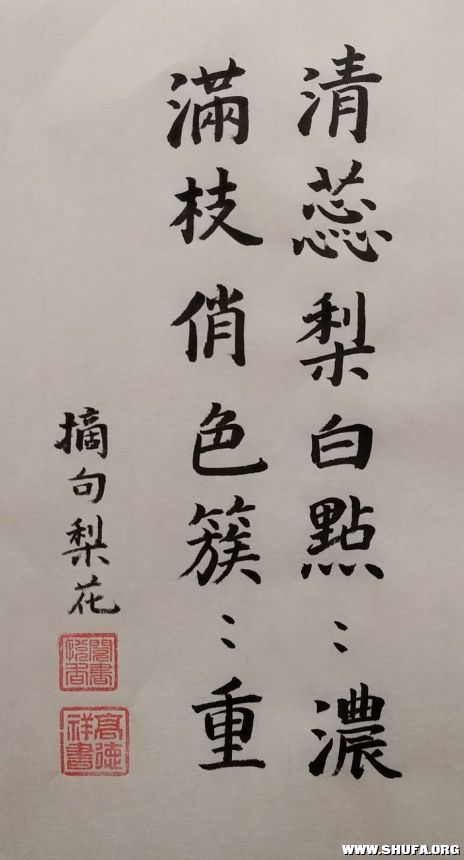 清蕊梨白點：濃
滿枝俏色簇：重
摘句梨花
髙德祥書
WWW.SHUFA.ORG